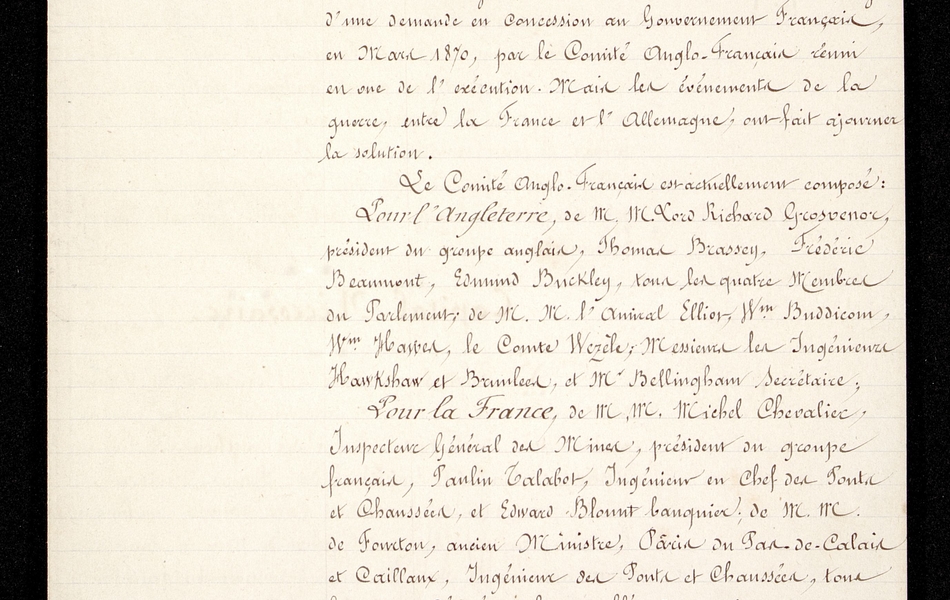 d'une demande en concession au Gouvernement Français,
en Mars 1870, par le Comité Anglo-Français réuni
en vue de l'exécution. Mais les événements de la
guerre, entre la France et l'Allemagne, ont fait ajourner
la solution.
Le Comité Anglo-Français est actuellement composé:
Pour l'Angleterre, de M. M. Lord Richard Grosvenor,
président du groupe anglais, Thomas Brassey, Frédéric
Beaumont, Edmund Buckley, tous les quatre Membres
du Parlement; de M. M. l'Amiral Elliot, Wm Buddicom,
Wm Hawes, le Comte Wezèle; Messieurs les Ingénieurs
Hawkshaw et Brunlees, et Mr Bellingham Secrétaire;
Pour la France, de M. M. Michel Chevalier,
Inspecteur Général des Mines, président du groupe
français, Paulin Talabot, Ingénieur en Chef des Ponts
et Chaussées, et Edward Blount banquier; de M. M.
de Fourton, ancien Ministre, Pâris du Pas-de-Calais
et Caillaux, Ingénieur des Ponts et Chaussées, tous